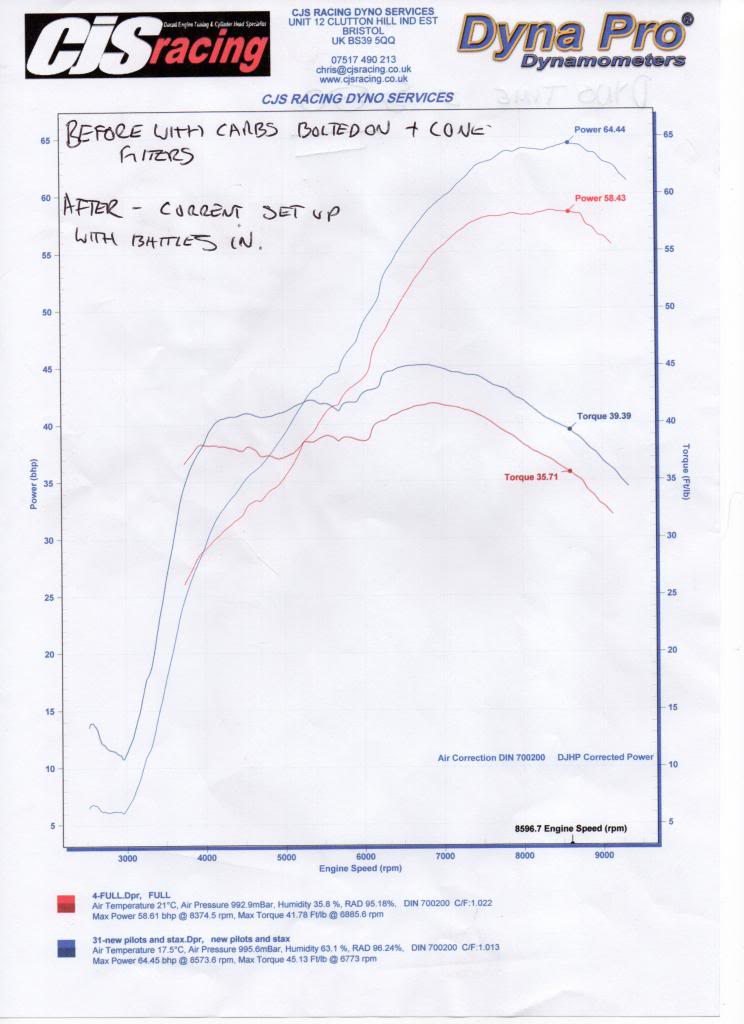 CJS racing
Ducati Engine Tuning & Cylinder Head Specialist
CJS RACING DYNO SERVICES
UNIT 12 CLUTTON HILL IND EST
BRISTOL
UK BS39 5QQ
07517 490 213
chris@cjsracing.co.uk
www.cjsracing.co.uk
Dyna Pro®
Dynamometers
CJS RACING DYNO SERVICES
BEFORE WITH CARBS BOLTED ON + CONE
FILTERS
AFTER - CURRENT SET UP
WITH BAFFLES IN.
Power 64.44
Power 58.43
Torque 39.39
Torque 35.71
Power (bhp)
65
60
55
50
45
40
35
30
25
20
15
10
5
Torque (Ft/lb)
65
60
55
50
45
40
35
30
25
20
15
10
5
Air Correction DIN 700200 DJHP Corrected Power
8596.7 Engine Speed (rpm)
3000 4000 5000 6000 7000 8000 9000
Engine Speed (rpm)
4-FULL.Dpr, FULL
Air Temperature 21°C, Air Pressure 992.9mBar, Humidity 35.8 %, RAD 95.18%, DIN 700200 C/F:1.022
Max Power 58.61 bhp @ 8374.5 rpm, Max Torque 41.78 Ft/lb @ 6885.6 rpm
31-new pilots and stax.Dpr, new pilots and stax
Air Temperature 17.5°C, Air Pressure 995.6mBar, Humidity 63.1 %, RAD 96.24%, DIN 700200 C/F:1.013
Max Power 64.45 bhp @ 8573.6 rpm, Max Torque 45.13 Ft/lb @ 6773 rpm